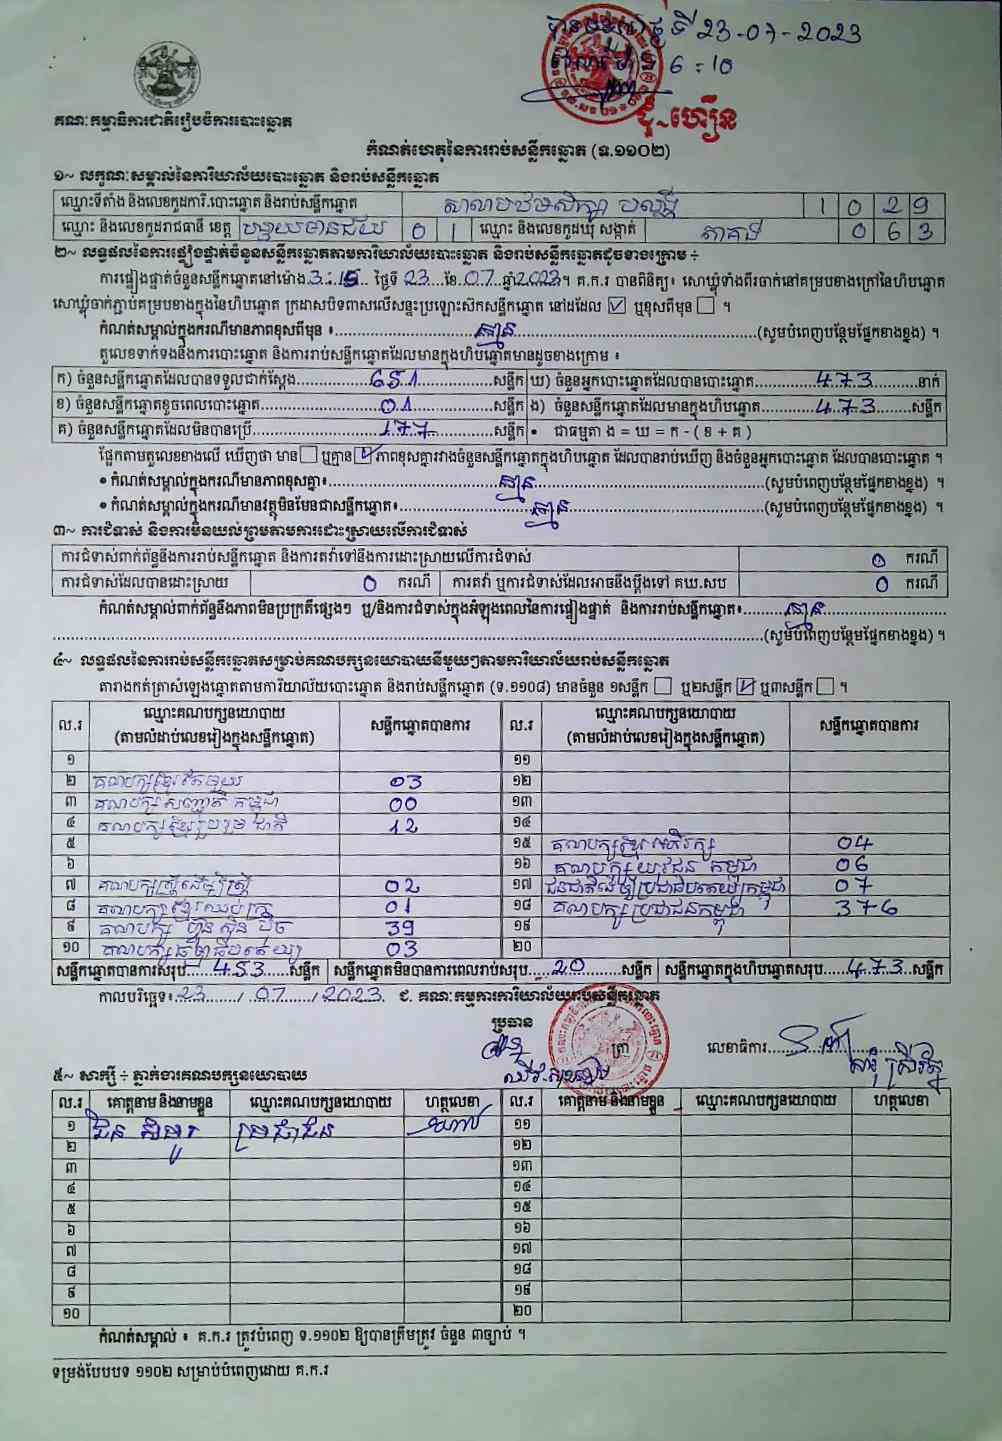 ថ្ងៃទី 23-07-2023
6:10
គណៈកម្មាធិការជាតិរៀបចំការបោះឆ្នោត
កំណត់ហេតុនៃការរាប់សន្លឹកឆ្នោត (ទ.១១០២)
១~ លក្ខណៈសម្គាល់នៃការិយាល័យបោះឆ្នោត និងរាប់សន្លឹកឆ្នោត
ឈ្មោះទីតាំង និងលេខកូដការិ.បោះឆ្នោត និងរាប់សន្លឹកឆ្នោត សាលាបឋមសិក្សា 1 0 2 9
ឈ្មោះ និងលេខកូដរាជធានី ខេត្ត បន្ទាយមានជ័យ 0 1 ឈ្មោះ និងលេខកូដឃុំ សង្កាត់ 0 6 3
២~ លទ្ធផលនៃការផ្ទៀងផ្ទាត់ចំនួនសន្លឹកឆ្នោតតាមការិយាល័យបោះឆ្នោត និងរាប់សន្លឹកឆ្នោតដូចខាងក្រោម ÷
ការផ្ទៀងផ្ទាត់ចំនួនសន្លឹកឆ្នោតនៅម៉ោង 3:15 ថ្ងៃទី 23 ខែ 07 ឆ្នាំ 2023។ គ.ក.រ បានពិនិត្យ៖ សោឃ្លុំទាំងពីរចាក់នៅគម្របខាងក្រៅនៃហិបឆ្នោត
សោឃ្លុំចាក់ភ្ជាប់គម្របខាងក្នុងនៃហិបឆ្នោត ក្រដាសបិទពាសលើសន្ទះប្រឡោះស៊កសន្លឹកឆ្នោត នៅដដែល ☑ ឬខុសពីមុន ☐ ។
កំណត់សម្គាល់ក្នុងករណីមានភាពខុសពីមុន ៖ គ្មាន (សូមបំពេញបន្ថែមផ្នែកខាងខ្នង) ។
តួលេខទាក់ទងនឹងការបោះឆ្នោត និងការរាប់សន្លឹកឆ្នោតដែលមានក្នុងហិបឆ្នោតមានដូចខាងក្រោម ៖
ក) ចំនួនសន្លឹកឆ្នោតដែលបានទទួលជាក់ស្តែង 651 សន្លឹក ឃ) ចំនួនអ្នកបោះឆ្នោតដែលបានបោះឆ្នោត 473 នាក់
ខ) ចំនួនសន្លឹកឆ្នោតខូចពេលបោះឆ្នោត 01 សន្លឹក ង) ចំនួនសន្លឹកឆ្នោតដែលមានក្នុងហិបឆ្នោត 473 សន្លឹក
គ) ចំនួនសន្លឹកឆ្នោតដែលមិនបានប្រើ 177 សន្លឹក • ជាធម្មតា ង = ឃ = ក - ( ខ + គ )
ផ្អែកតាមតួលេខខាងលើ ឃើញថា មាន ☐ ឬគ្មាន ☑ ភាពខុសគ្នារវាងចំនួនសន្លឹកឆ្នោតក្នុងហិបឆ្នោត ដែលបានរាប់ឃើញ និងចំនួនអ្នកបោះឆ្នោត ដែលបានបោះឆ្នោត ។
• កំណត់សម្គាល់ក្នុងករណីមានភាពខុសគ្នា៖ គ្មាន (សូមបំពេញបន្ថែមផ្នែកខាងខ្នង) ។
• កំណត់សម្គាល់ក្នុងករណីមានវត្ថុមិនមែនជាសន្លឹកឆ្នោត៖ គ្មាន (សូមបំពេញបន្ថែមផ្នែកខាងខ្នង) ។
៣~ ការជំទាស់ និងការមិនយល់ព្រមតាមការដោះស្រាយលើការជំទាស់
ការជំទាស់ពាក់ព័ន្ធនឹងការរាប់សន្លឹកឆ្នោត និងការតវ៉ាទៅនឹងការដោះស្រាយលើការជំទាស់ 0 ករណី
ការជំទាស់ដែលបានដោះស្រាយ 0 ករណី ការតវ៉ា ឬការជំទាស់ដែលអាចនឹងប្តឹងទៅ គឃ.សប 0 ករណី
កំណត់សម្គាល់ពាក់ព័ន្ធនឹងភាពមិនប្រក្រតីផ្សេងៗ ឬ/និងការជំទាស់ក្នុងអំឡុងពេលនៃការផ្ទៀងផ្ទាត់ និងការរាប់សន្លឹកឆ្នោត៖ គ្មាន
(សូមបំពេញបន្ថែមផ្នែកខាងខ្នង) ។
៤~ លទ្ធផលនៃការរាប់សន្លឹកឆ្នោតសម្រាប់គណបក្សនយោបាយនីមួយៗតាមការិយាល័យរាប់សន្លឹកឆ្នោត
តារាងកត់ត្រាសំឡេងឆ្នោតតាមការិយាល័យបោះឆ្នោត និងរាប់សន្លឹកឆ្នោត (ទ.១១០៨) មានចំនួន ១សន្លឹក ☐ ឬ២សន្លឹក ☑ ឬ៣សន្លឹក ☐ ។
ល.រ ឈ្មោះគណបក្សនយោបាយ (តាមលំដាប់លេខរៀងក្នុងសន្លឹកឆ្នោត) សន្លឹកឆ្នោតបានការ ល.រ ឈ្មោះគណបក្សនយោបាយ (តាមលំដាប់លេខរៀងក្នុងសន្លឹកឆ្នោត) សន្លឹកឆ្នោតបានការ
១ ១១
២ គណបក្សខ្មែរតែមួយ 03 ១២
៣ គណបក្ស សញ្ជាតិ កម្ពុជា 00 ១៣
៤ គណបក្សខ្មែររួបរួម ជាតិ 12 ១៤
៥ ១៥ គណបក្សខ្មែរ អភិរក្ស 04
៦ ១៦ គណបក្ស យុវជន កម្ពុជា 06
៧ គណបក្សស្ត្រីដើម្បីស្ត្រី 02 ១៧ ជនជាតិដើម្បីប្រជាធិបតេយ្យកម្ពុជា 07
៨ គណបក្សខ្មែរឈប់ក្រ 01 ១៨ គណបក្សប្រជាជនកម្ពុជា 376
៩ គណបក្ស ហ៊្វុនស៊ិនប៉ិច 39 ១៩
១០ គណបក្សធម្មាធិបតេយ្យ 03 ២០
សន្លឹកឆ្នោតបានការសរុប 453 សន្លឹក សន្លឹកឆ្នោតមិនបានការពេលរាប់សរុប 20 សន្លឹក សន្លឹកឆ្នោតក្នុងហិបឆ្នោតសរុប 473 សន្លឹក
កាលបរិច្ឆេទ៖ 23 / 07 / 2023 ជ. គណៈកម្មការការិយាល័យរាប់សន្លឹកឆ្នោត
ប្រធាន
ត្រា លេខាធិការ
៥~ សាក្សី ÷ ភ្នាក់ងារគណបក្សនយោបាយ
ល.រ គោត្តនាម និងនាមខ្លួន ឈ្មោះគណបក្សនយោបាយ ហត្ថលេខា ល.រ គោត្តនាម និងនាមខ្លួន ឈ្មោះគណបក្សនយោបាយ ហត្ថលេខា
១ ប្រជាជន ១១
២ ១២
៣ ១៣
៤ ១៤
៥ ១៥
៦ ១៦
៧ ១៧
៨ ១៨
៩ ១៩
១០ ២០
កំណត់សម្គាល់ ៖ គ.ក.រ ត្រូវបំពេញ ទ.១១០២ ឱ្យបានត្រឹមត្រូវ ចំនួន ៣ច្បាប់ ។
ទម្រង់បែបបទ ១១០២ សម្រាប់បំពេញដោយ គ.ក.រ